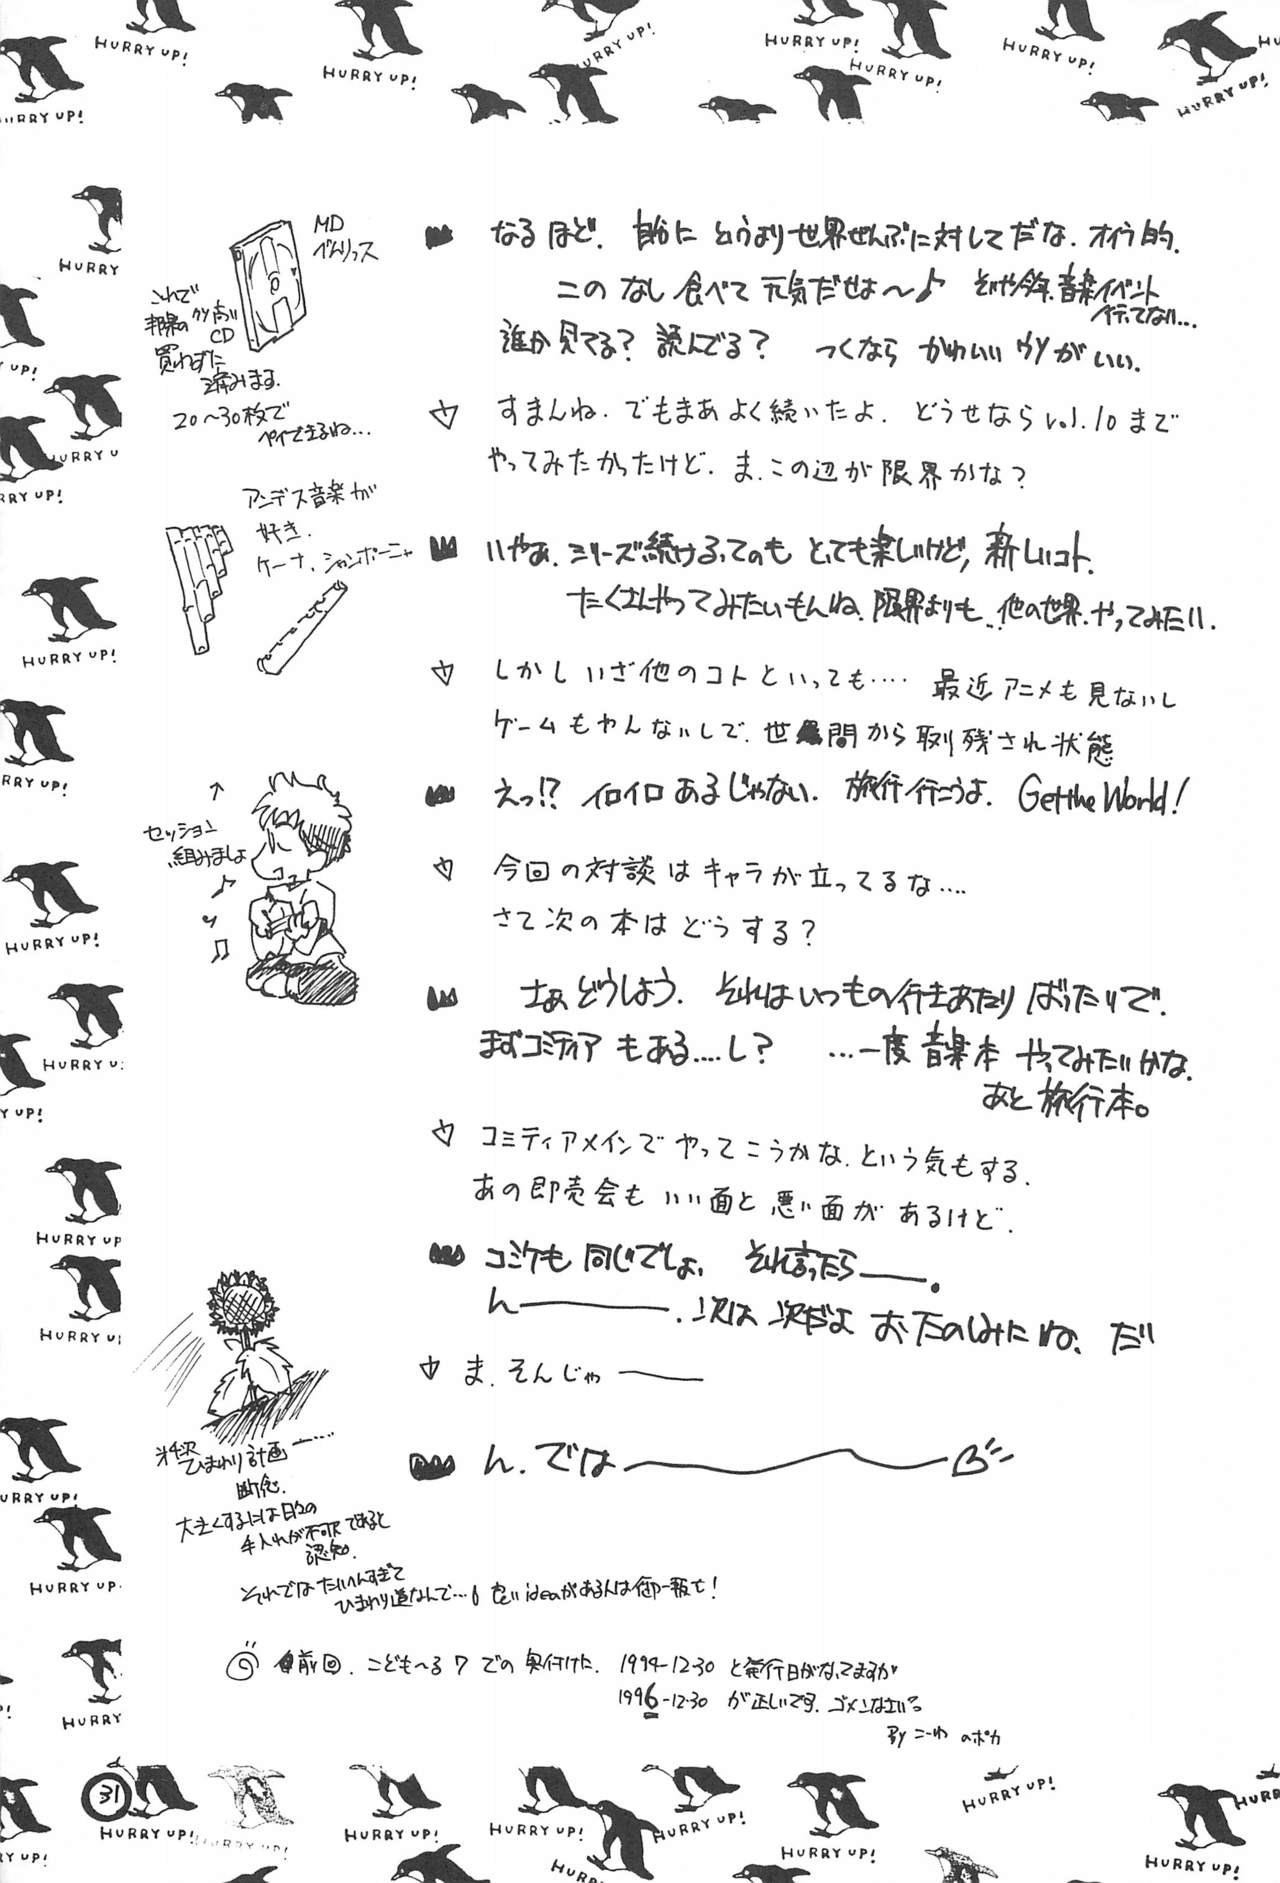 HURRY UP!
MD
べんりっス
これで
邦楽のクソ高い
CD
買わずに
済みます.
20〜30枚で
ペイできるね…
アンデス音楽が
好き.
ケーナ、シャンポーニャ
セッション
組みましょ
ひまわり計画
断念.
大きくするには日々の
手入れが不可欠であると
認知.
それではたいへんすぎて
ひまわり道なんで…
良いideaがある人は御一報を!
なるほど. 自分にというより世界ぜんぶに対してだな. オイラ的.
このなし食べて元気だせよ〜♪ そいや今年、音楽イベント
行ってない…
誰か見てる? 読んでる? つくならかわいいウソがいい.
すまんね. でもまあよく続いたよ. どうせならvol.10まで
やってみたかったけど. ま.この辺が限界かな?
いやぁ. シリーズ続けるってのもとっても楽しいけど, 新しいコト.
たくさんやってみたいもんね. 限界よりも…他の世界.やってみたい.
しかしいざ他のコトといっても…. 最近アニメも見ないし
ゲームもやんないしで. 世間から取り残され状態
えっ!? イロイロあるじゃない. 旅行行こうよ. Get the World!
今回の対談はキャラが立ってるな….
さて次の本はどうする?
さぁどうしよう. それはいつもの行きあたりばったりで.
まずコミティアもある….し? …一度音楽本やってみたいかな.
あと旅行本。
コミティアメインでやってこうかな.という気もする.
あの即売会もいい面と悪い面があるけど.
コミケも同じでしょ. それ言ったら――.
ん――――. 次は次だよ お.たのしみにね. だ!
ま. そんじゃ――
ん. では――――
前回. こども〜る7での奥付けに. 1994-12-30 と発行日がなってますが
1996-12-30 が正しいです. ゴメンなさい
By こーわ のポカ
31
HURRY UP!